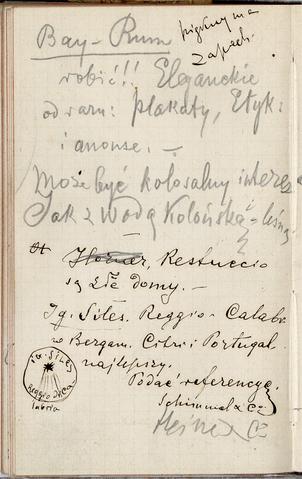 Bay-Rum
piękny ma
zapach.
robić!! Eleganckie
od razu: plakaty, Etyk:
i anonse. —
Może być kolosalny interes
Jak z Wodą Kolońską
Restuccio
są złe domy. —
Ig. Siles. Reggio-Calabr.
w Bergam. Citri i Portugal
najlepszy.
Podać referencye
Schimmel & Co
Heine & Co
IG. SILES
Reggio